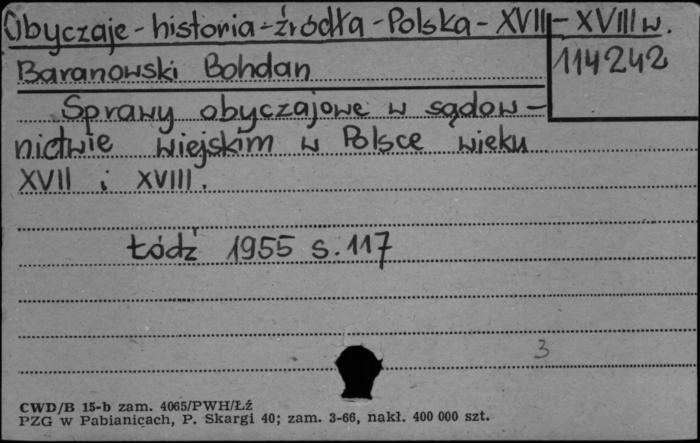 Obyczaje - historia - źródła - Polska - XVII - XVIII w.
114242
Baranowski Bohdan
Sprawy obyczajowe w sądow-
nictwie wiejskim w Polsce wieku
XVII i XVIII.
Łódź 1955 s. 117
3
CWD/B 15-b zam. 4065/PWH/Łź
PZG w Pabianicach, P. Skargi 40; zam. 3-66, nakł. 400 000 szt.